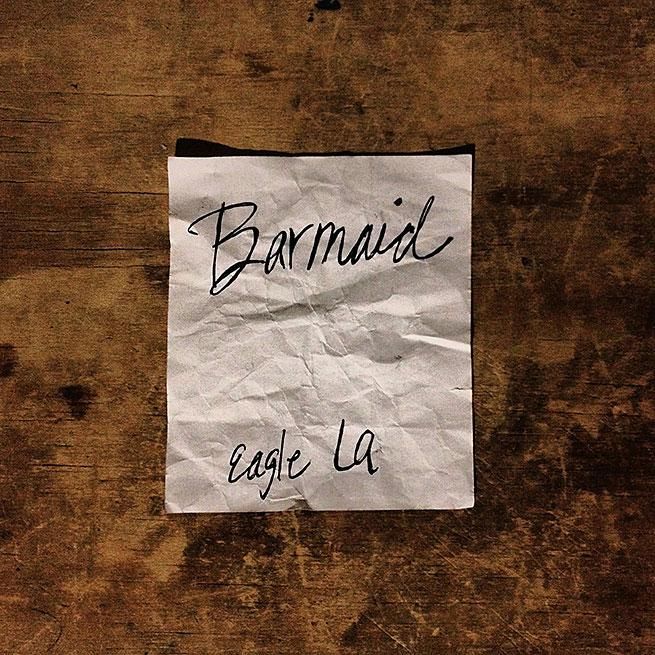 Barmaid
Eagle La